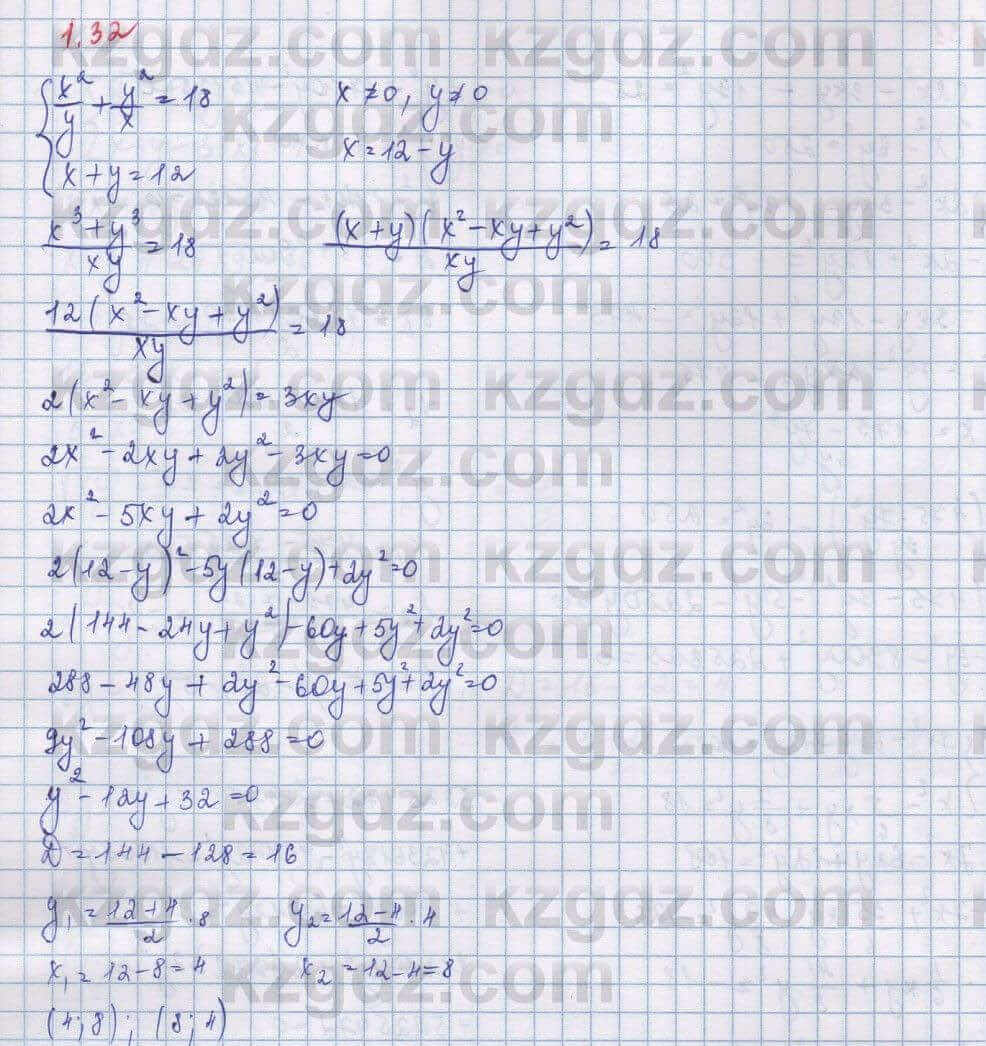 1.32
{ x²/y + y²/x = 18     x ≠ 0, y ≠ 0
x + y = 12     x = 12 - y
(x³ + y³)/xy = 18     (x + y)(x² - xy + y²)/xy = 18
12(x² - xy + y²)/xy = 18
2(x² - xy + y²) = 3xy
2x² - 2xy + 2y² - 3xy = 0
2x² - 5xy + 2y² = 0
2(12 - y)² - 5y(12 - y) + 2y² = 0
2(144 - 24y + y²) - 60y + 5y² + 2y² = 0
288 - 48y + 2y² - 60y + 5y² + 2y² = 0
9y² - 108y + 288 = 0
y² - 12y + 32 = 0
D = 144 - 128 = 16
y₁ = (12 + 4)/2 · 8     y₂ = (12 - 4)/2 · 4
x₁ = 12 - 8 = 4     x₂ = 12 - 4 = 8
(4; 8); (8; 4)
kzgdz.com